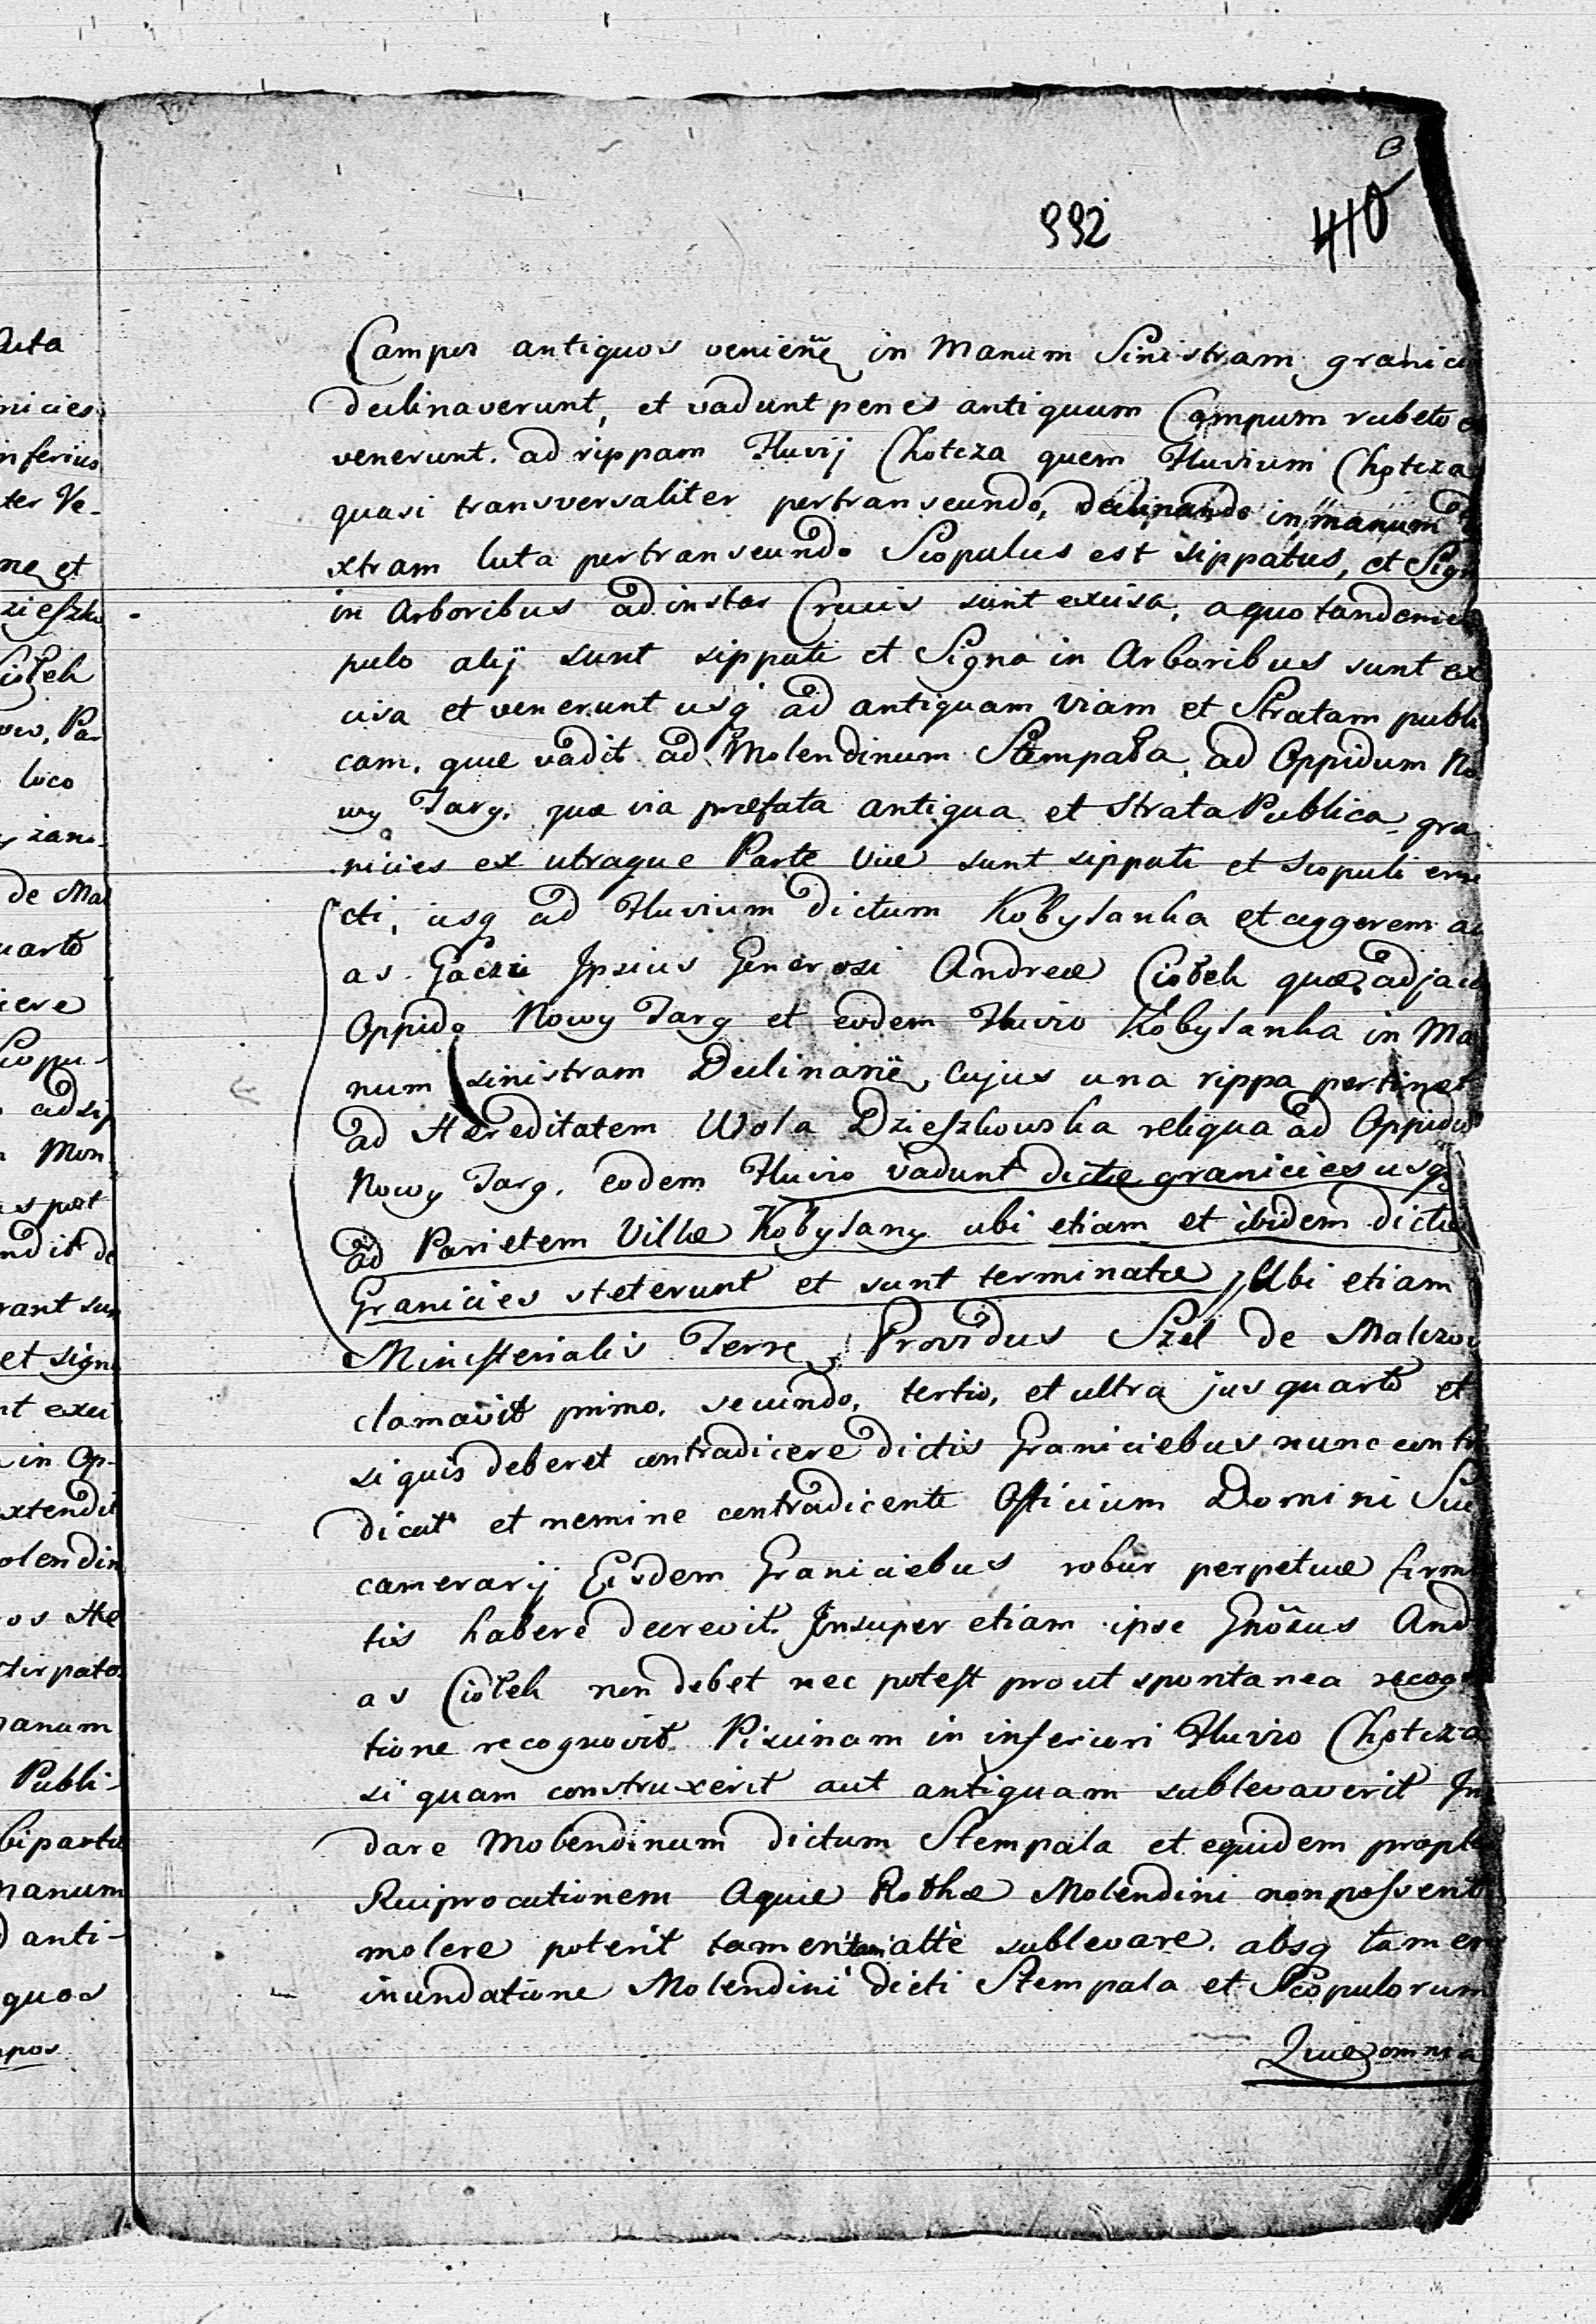 992 410
Campos antiquos venienẽ in Manum Sinistram granici
declinaverunt, et vadunt penes antiquum Campum rubeto
venerunt. ad rippam Fluvij Chotcza quem Fluvium Chotcza
quasi transversaliter pertranseundo, declinando in manum de
xtram luta pertranseundo Scopulus est sippatus, et Sign
in Arboribus ad instar Crucis sunt excisa, a quo tandem
pulo alij sunt sippati et Signa in Arboribus sunt ex
cisa et venerunt usq ad antiquam viam et Stratam publi
cam, quæ vadit ad Molendinum Stempała, ad Oppidum No
wy Targ. qua via præfata antiqua et Strata Publica gra
nicies ex utraque Parte viæ sunt sippati et scopuli ere
cti, usq ad Fluvium dictum Kobylanka et aggerem
as Gaczii Ipsius Generosi Andreæ Ciołek quæ adjacet
Oppido Nowy Targ et eodem Fluvio Kobylanka in Ma
num sinistram Declinanẽ, cujus una rippa pertinet
ad Hæreditatem Wola Dzieszkowska reliqua ad Oppidum
Nowy Targ. eodem Fluvio vadunt dictæ granicies usq
ad Parietem Villæ Kobylany ubi etiam et ibidem dictæ
Granicies steterunt et sunt terminatæ, Ubi etiam
Ministerialis Terrę Providus Szel de Malczow
clamavit primo, secundo, tertio, et ultra jus quarto et
si quis deberet contradicere dictis Graniciebus nunc contra
dicat et nemine contradicente Officium Domini Suc
camerarij Eisdem Graniciebus robur perpetuæ firmi
tis habere decrevit. Insuper etiam ipse Gnõsus And
as Ciołek non debet nec potest prout spontanea recogn
tione recognovit. Piscinam in inferiori Fluvio Chotcza
si quam construxerit aut antiquam sublevaverit In
dare Molendinum dictum Stempala et equidem propter
Reciprocationem Aquæ Rothæ Molendini non possent
molere poterit tamen tam alte sublevare. absq tamen
inundatione Molendini dicti Stempala et Scopulorum
Quæ omnia